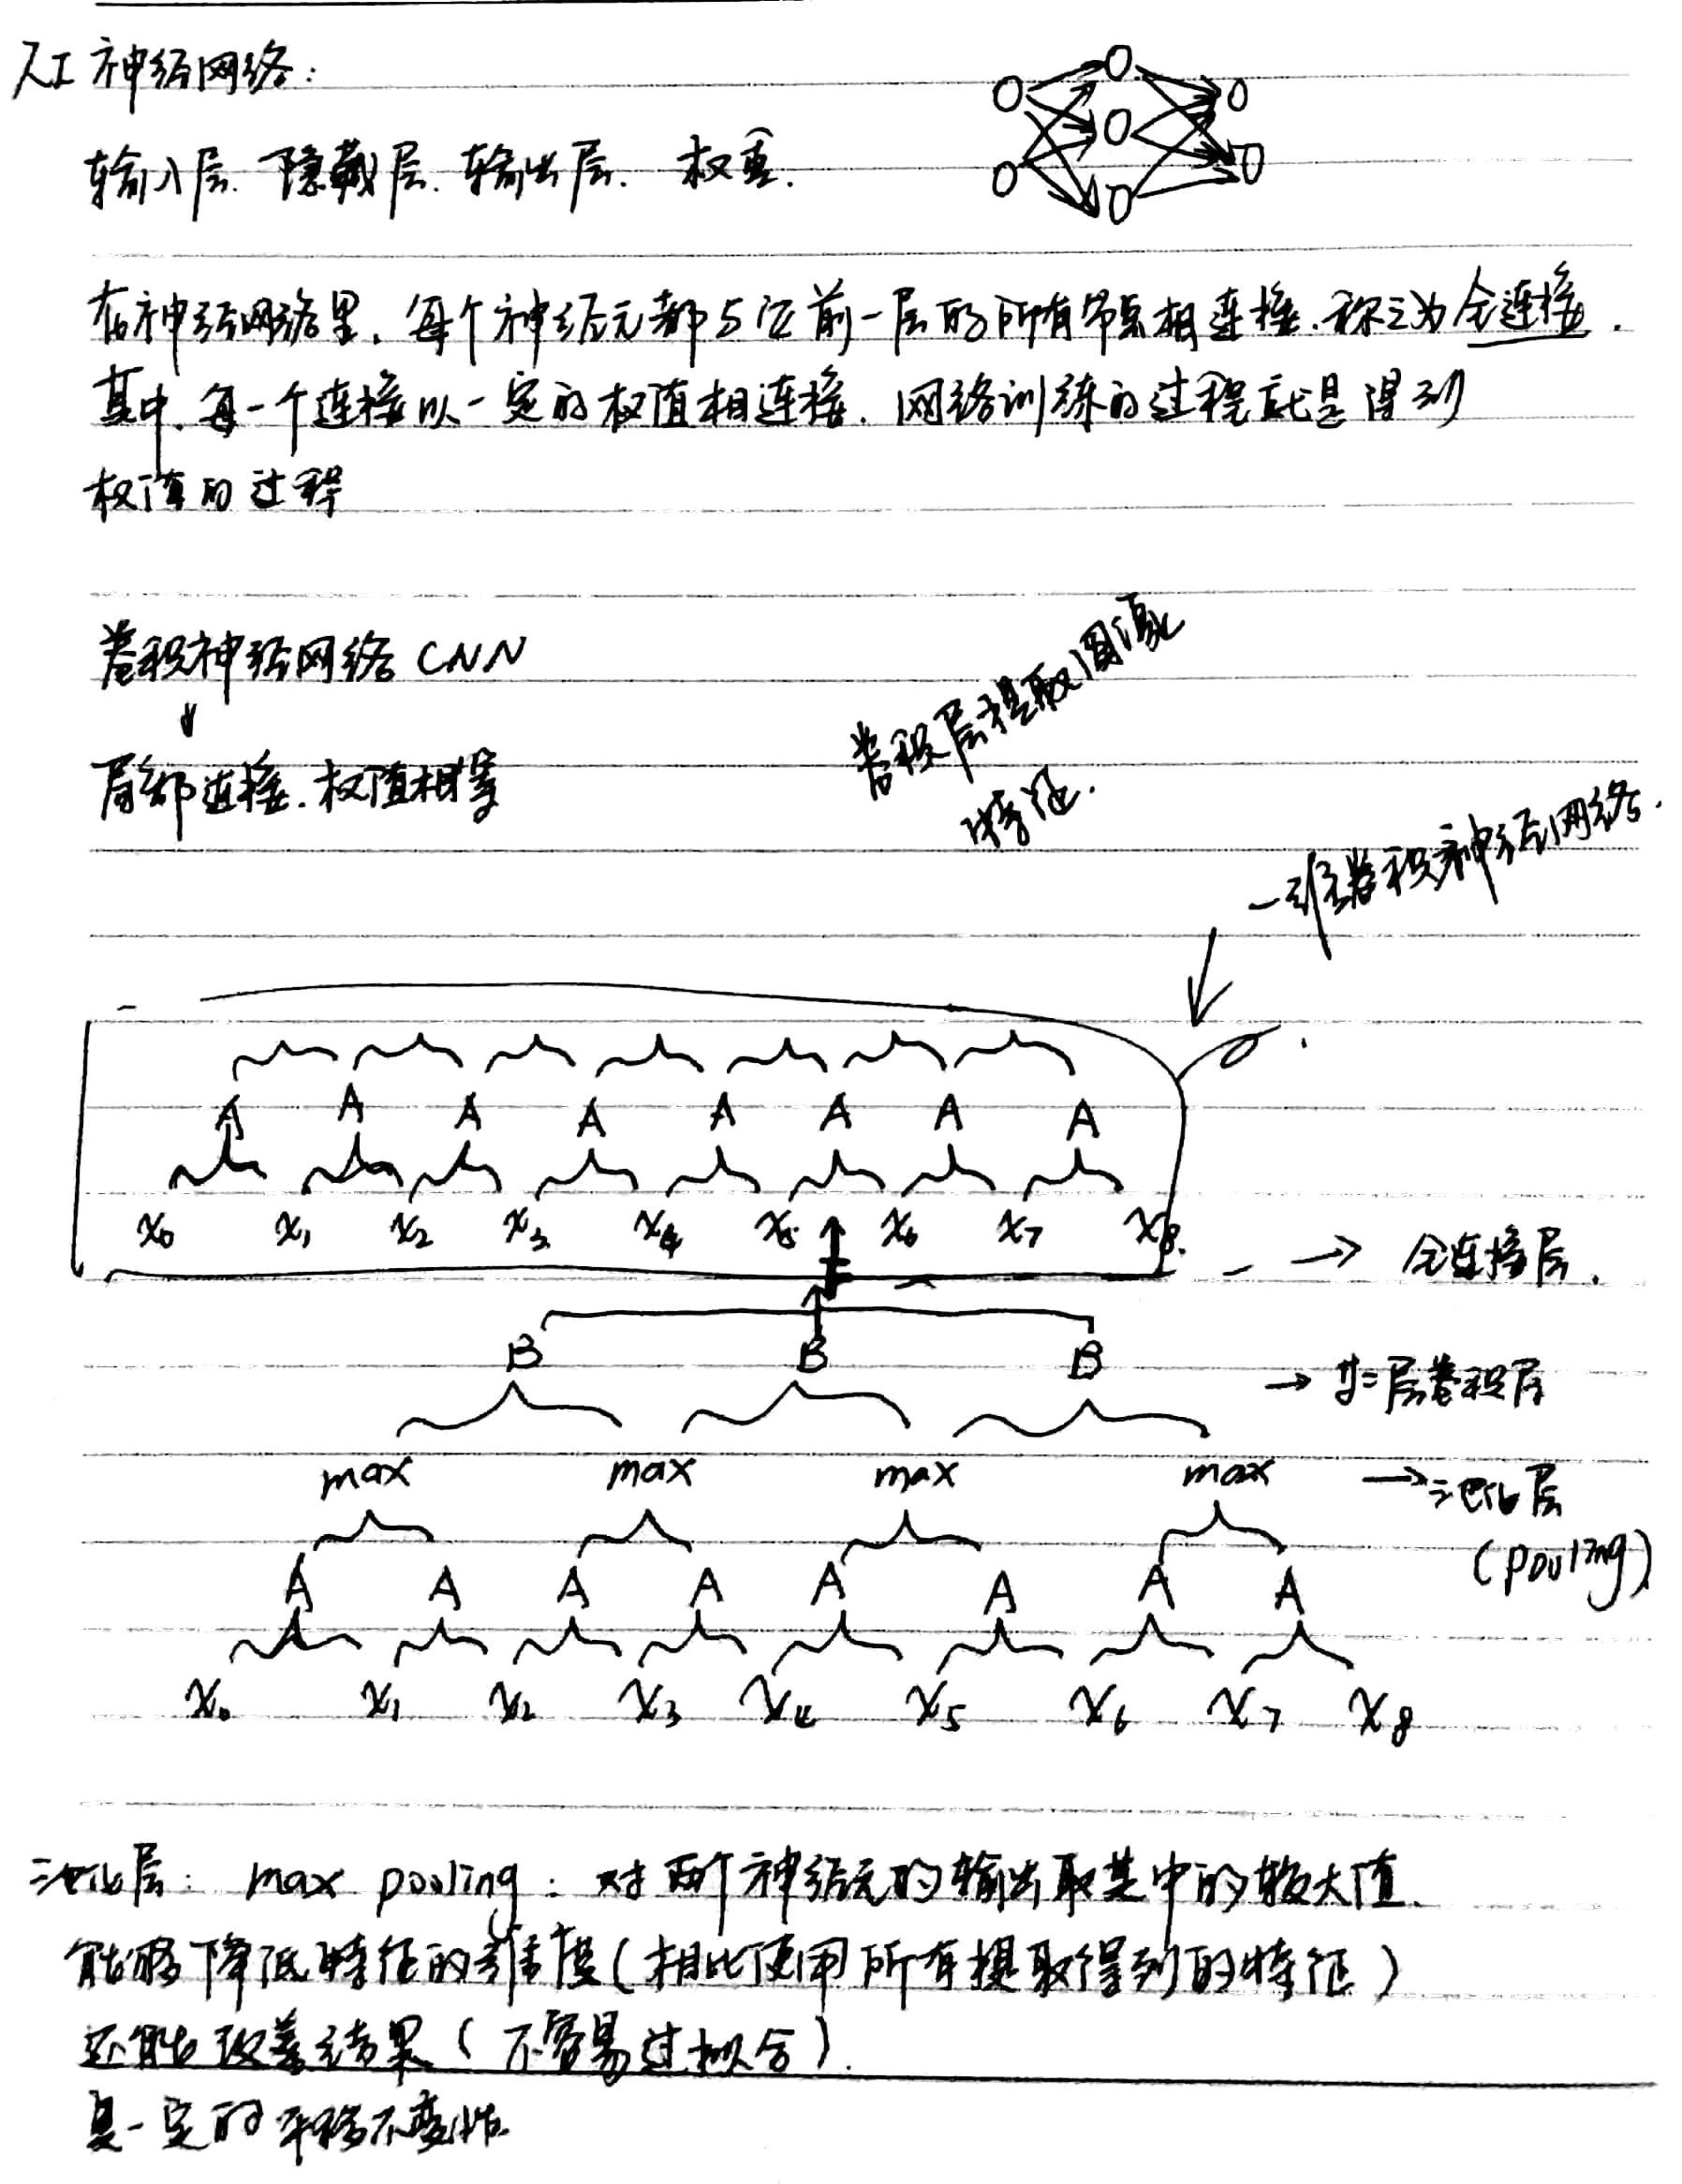 人工神经网络:
输入层. 隐藏层. 输出层. 权重.
在神经网络里. 每个神经元都与它前一层的所有节点相连接. 称之为全连接.
其中. 每一个连接以一定的权值相连接. 网络训练的过程就是得到
权值的过程
卷积神经网络 CNN
局部连接. 权值相等
卷积层提取图像
特征.
一维卷积神经网络.
A A A A A A A A
x0 x1 x2 x3 x4 x5 x6 x7 x8.
→ 全连接层.
B B B
→ 第二层卷积层
max max max max
→ 池化层
(pooling)
A A A A A A A A
x0 x1 x2 x3 x4 x5 x6 x7 x8
池化层: max pooling: 对两个神经元的输出取其中的较大值.
能够降低特征的维度(相比使用所有提取得到的特征)
还能改善结果(不容易过拟合).
具一定的平移不变性.